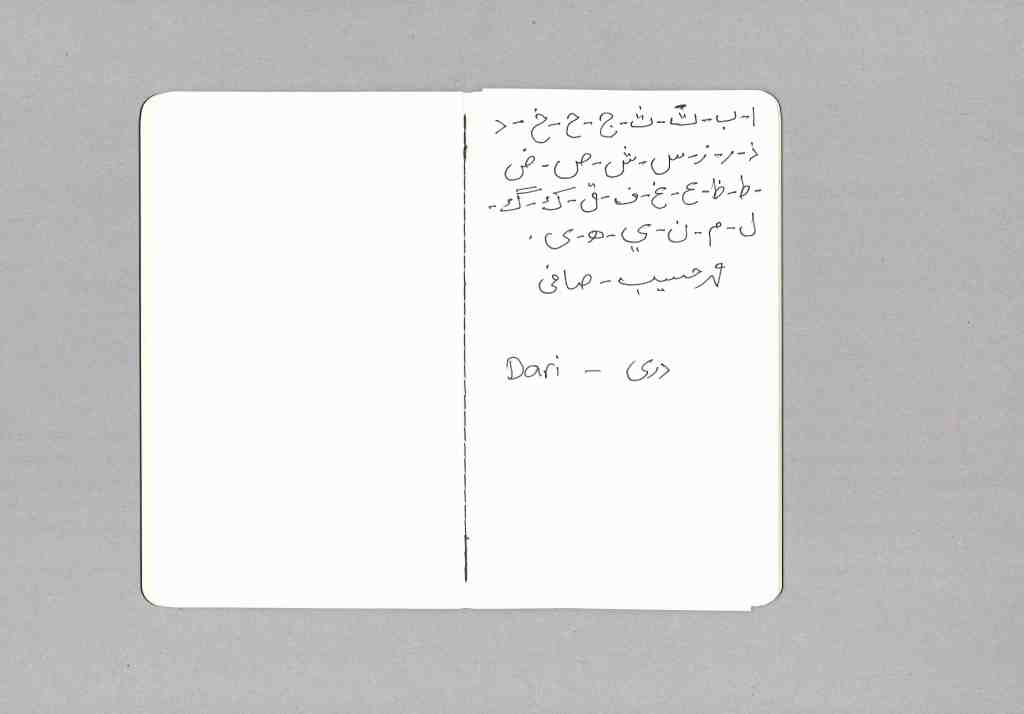 ا - ب - ت - ث - ج - ح - خ - د
ذ - ر - ز - س - ش - ص - ض
- ط - ظ - ع - غ - ف - ق - ک - گ -
ل - م - ن - ي - ه - ی .
حسیب - صافی
Dari – دری